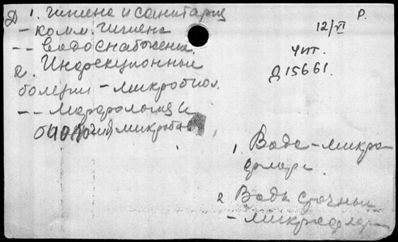 Д 1. Гигиена и санитария
- комм. гигиена
-- водоснабжение
2. Инфекционные
болезни - микробиол.
-- Морфология и
микробов
12/VI
Р.
Чит.
Д 15661.
1. Вода - микро
флора.
2. Воды сточные
- микрофлора